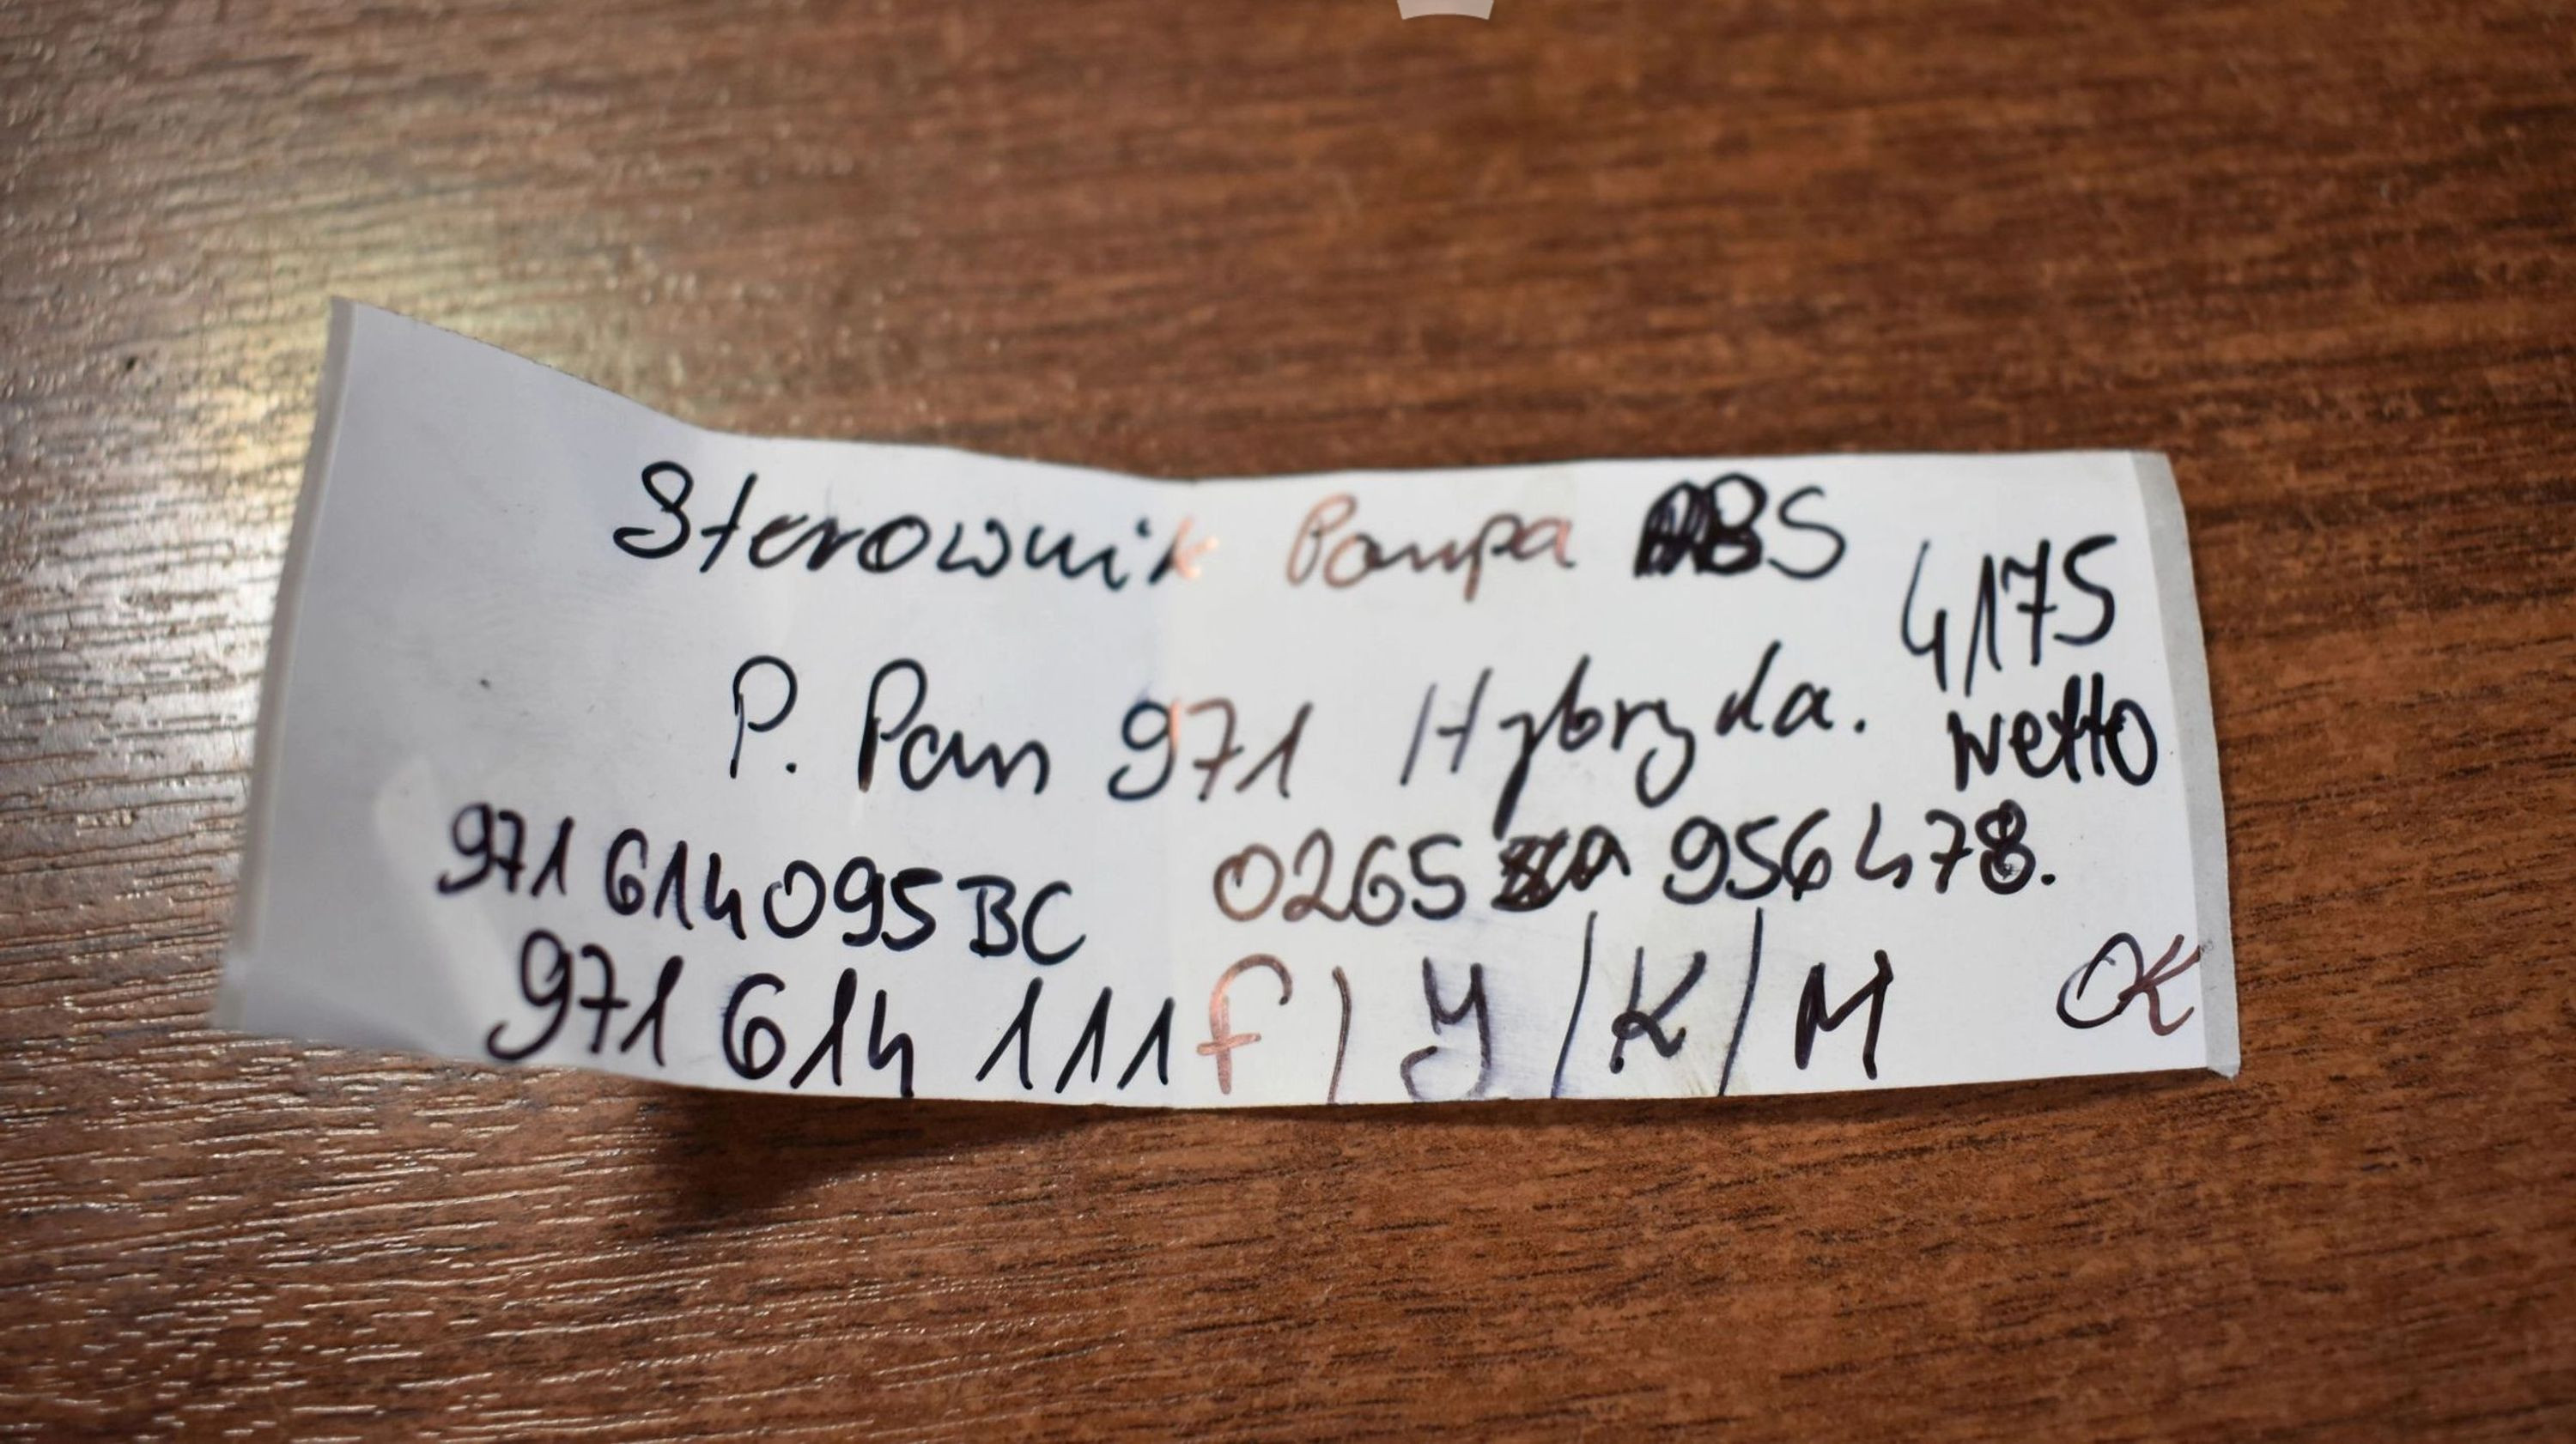 Sterownik Pompa ABS
4175
P. Pan 971 Hybryda. netto
971 614 095 BC 0265 956 478.
971 614 111 f / Y / K / M OK